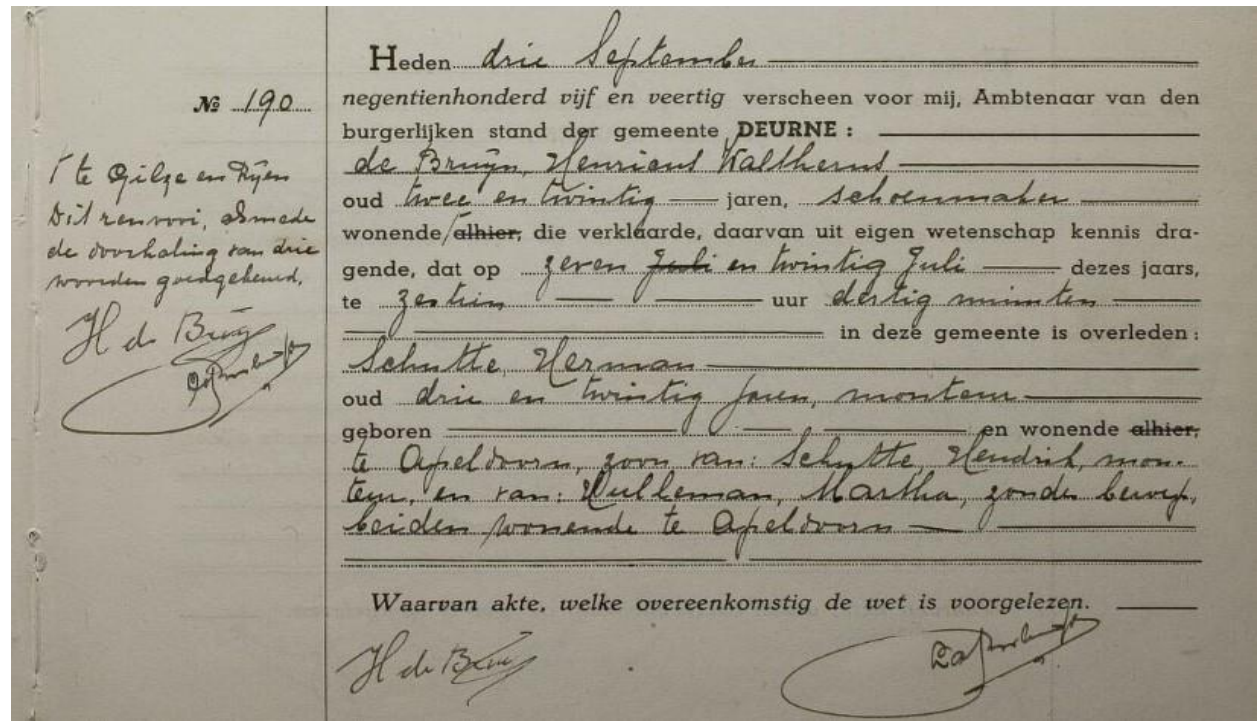 Nº 190
⌈ te Gilze en Rijen
Dit renvooi, alsmede
de doorhaling van drie
woorden goedgekeurd.
H de Bruijn
Heden drie September
negentienhonderd vijf en veertig verscheen voor mij, Ambtenaar van den
burgerlijken stand der gemeente DEURNE :
de Bruijn, Henricus Waltherus
oud twee en twintig jaren, schoenmaker
wonende ⌈ alhier, die verklaarde, daarvan uit eigen wetenschap kennis dra-
gende, dat op zeven Juli en twintig Juli dezes jaars,
te zestien uur dertig minuten
in deze gemeente is overleden :
Schutte, Herman
oud drie en twintig jaren, monteur
geboren en wonende alhier,
te Apeldoorn, zoon van: Schutte, Hendrik, mon-
teur, en van: Wulleman, Martha, zonder beroep,
beiden wonende te Apeldoorn
Waarvan akte, welke overeenkomstig de wet is voorgelezen.
H de Bruijn